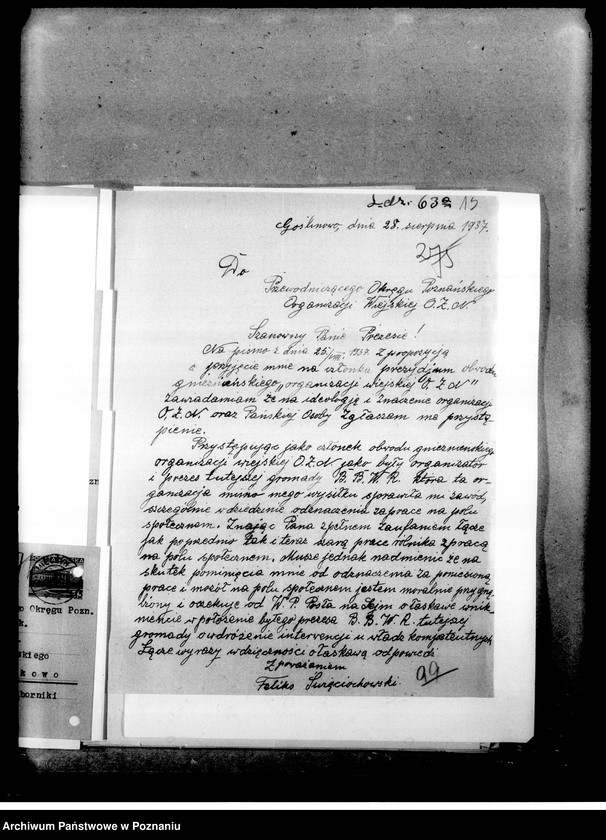 L.dz. 63 15
Goślinowo, dnia 28. sierpnia 1937.
275
Do
Przewodniczącego Okręgu Poznańskiego
Organizacji Wiejskiej O.Z.N
Szanowny Panie Prezesie!
Na pismo z dnia 25/VIII. 1937. z propozycją
o przyjęcie mnie na członka prezydjum obwodu
gnieźnieńskiego "organizacji wiejskiej O.Z.N"
zawiadamiam że na ideologię i znaczenie organizacji
O.Z.N. oraz Pańskiej Osoby zgłaszam me przystą
pienie.
Przystępując jako członek obwodu gnieźnieńskiej
organizacji wiejskiej O.Z.N jako były organizator
i prezes tutejszej gromady B.B.W.R. która ta or-
ganizacja mimo mego wysiłku sprawiła mi zawód,
szczególnie w dziedzinie odznaczenia za prace na polu
społecznem. Znając Pana z pełnem zaufaniem łączę
jak poprzednio tak i teraz szarą pracę rolnika z pracą
na polu społecznem. Muszę jednak nadmienić że na
skutek pominięcia mnie od odznaczenia za poniesioną
pracę i mozół na polu społecznem jestem moralnie przygnę
biony i oczekuję od W.P. Posła na Sejm o łaskawe wnik
nięcie w położenie byłego prezesa B.B.W.R. tutejszej
gromady o wdrożenie intervencji u władz kompetentnych
Łączę wyrazy wdzięczności o łaskawą odpowiedź
Z poważaniem
Feliks Święciochowski.
99
zn
o Okręgu Pozn.
k.
skiego
kowo
borniki
Archiwum Państwowe w Poznaniu